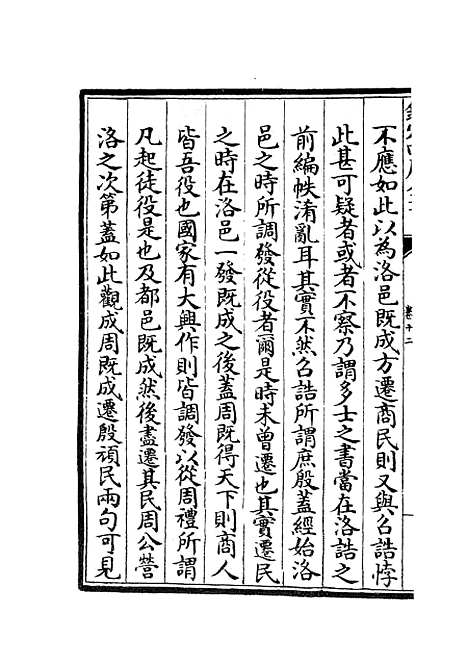 不應如此以為洛邑既成方遷商民則又與召誥悖
此甚可疑者或者不察乃謂多士之書當在洛誥之
前編帙淆亂耳其實不然召誥所謂庶殷蓋經始洛
邑之時所調發從役者爾是時未曾遷也其實遷民
之時在洛邑一發既成之後蓋周既得天下則商人
皆吾役也國家有大興作則皆調發以從周禮所謂
凡起徒役是也及都邑既成然後盡遷其民周公營
洛之次第蓋如此觀成周既成遷殷頑民兩句可見